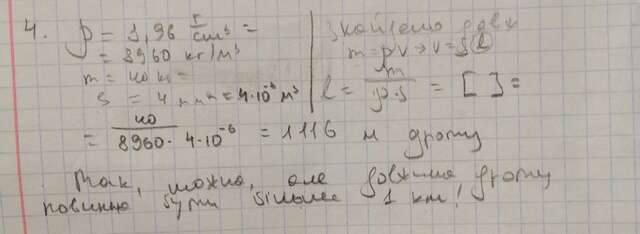 4. ρ = 8,96 г/см³ =
= 8960 кг/м³
m = 40 кг
S = 4 мм² = 4·10⁻⁶ м²
m = ρV → V = Sl
l = m/ρ·S = [ ] =
= 40/8960·4·10⁻⁶ = 1116 м дроту
Так, можна, але довжина дроту
повинна бути більше 1 км.